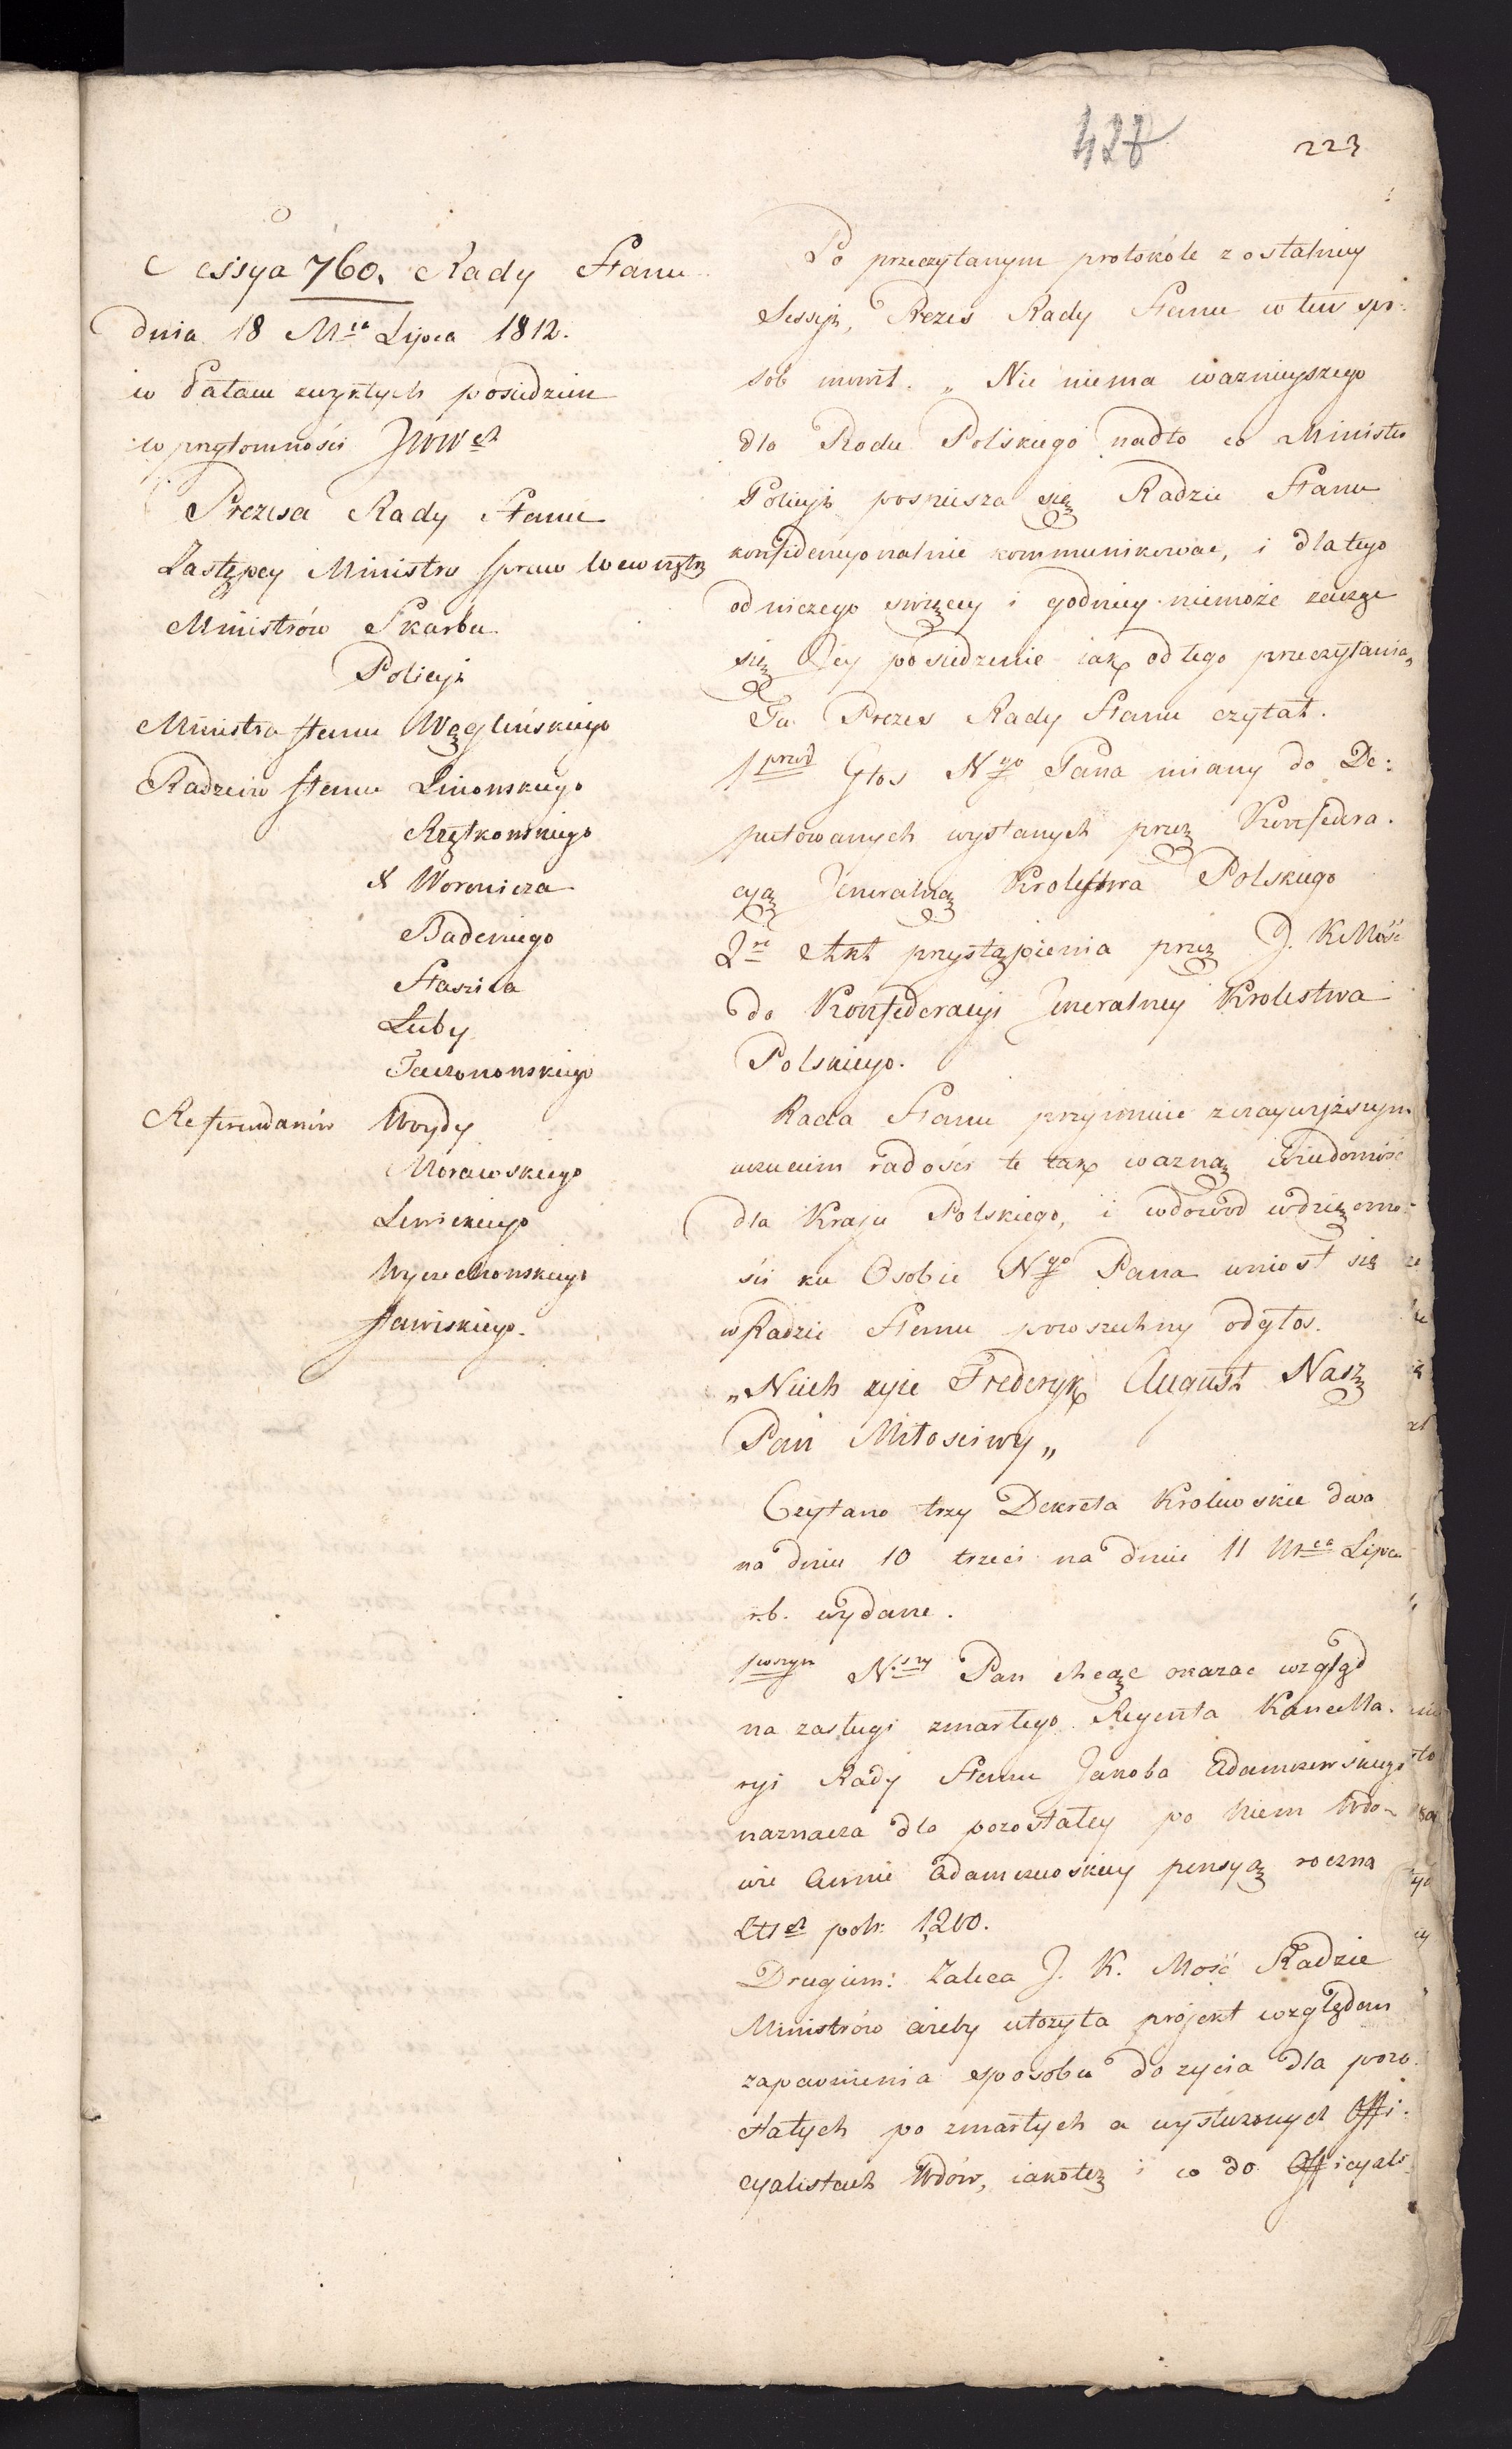 428
223
Sessya 760. Rady Stanu
dnia 18 Mca Lipca 1812.
w Pałacu zwykłych posiedzeń
w przytomności JWWch
Prezesa Rady Stanu
Zastępcy Ministra spraw wewnętrz
Ministrów Skarbu
Policyi
Ministra stanu Węglińskiego
Radzców stanu Linowskiego
Rzętkowskiego
X Woronicza
Badeniego
Staszica
Łuby
Taczonowskiego
Referendarzów Woydy
Morawskiego
Lewickiego
Wyczechowskiego
Sawiskiego.
Po przeczytanym protokole z ostatniey
Sessyi, Prezes Rady Stanu w ten spo:
sob mowił. „ Nic niema ważnieyszego
dla Rodu Polskiego nadto co Minister
Policyi pospiesza się Radzie Stanu
konfidencyonalnie kommunikować, i dla tego
od niczego swięcey i godniey niemoże zacząć
się Jey posiedzenie iak od tego przeczytania„
Tu Prezes Rady Stanu czytał.
1przod Głos Ngo Pana miany do De:
putowanych wysłanych przez Konfedera.
cyą Jeneralną Krolestwa Polskiego
2re Akt przystąpienia przez J. K Mość
do Konfederacyi Jeneralney Krolestwa
Polskiego.
Rada Stanu przyimuie z naywyższym
uczuciem radości te tak ważną wiadomość
dla Kraju Polskiego, i w dowod wdzięczno:
ści ku Osobie Ngo Pana wniosł się
w Radzie Stanu powszechny odgłos.
„Niech zyie Frederyk August Nasz
Pan Miłosciwy„
Czytano trzy Dekreta Krolewskie dwa
na dniu 10 trzeci na dniu 11 Mca Lipca
r.b. wydane.
1wszym N.szy Pan chcąc okazac wzgląd
na zasługi zmarłego Regenta Kancella.
ryi Rady Stanu Jakoba Adamczewskiego
naznacza dla pozostałey po Niem Wdo-
wie Annie Adamczewskiey pensyą roczną
Złłch pols: 1200.
Drugiem: Zaleca J. K. Mość Radzie
Ministrów ażeby ułożyła projekt względem
zapewnienia sposobu do zycia dla pozo.
stałych po zmarłych a wysłużonych Offi.
cyalistach Wdów, iakoteż i co do Officyali